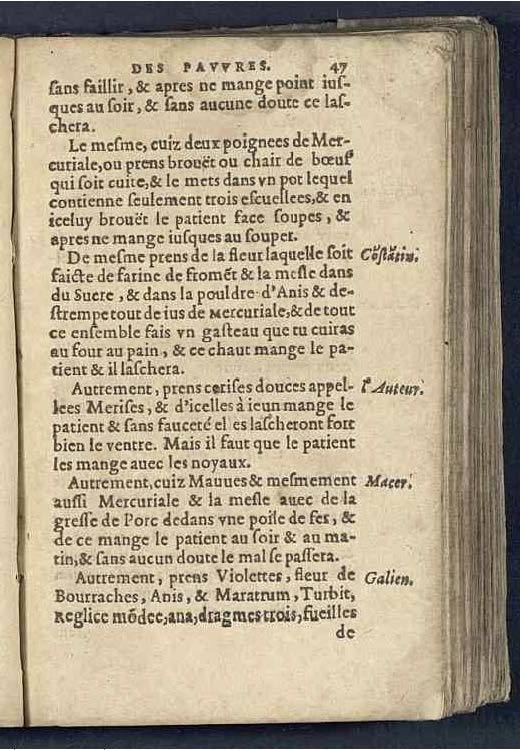 DES PAVVRES. 47
ſans faillir, & apres ne mange point iuſ-
ques au ſoir, & ſans aucune doute ce laſ-
chera.
Le meſme, cuiz deux poignees de Mer-
curiale, ou prens brouët ou chair de bœuf
qui ſoit cuite, & le mets dans vn pot lequel
contienne ſeulement trois eſcuellees, & en
iceluy brouët le patient face ſoupes, &
apres ne mange iuſques au ſouper.
De meſme prens de la fleur laquelle ſoit Cõſtãtin.
faicte de farine de fromẽt & la meſle dans
du Sucre, & dans la pouldre d'Anis & de-
ſtrempe tout de ius de Mercuriale, & de tout
ce enſemble fais vn gaſteau que tu cuiras
au four au pain, & ce chaut mange le pa-
tient & il laſchera.
Autrement, prens ceriſes douces appel- l'Auteur.
lees Meriſes, & d'icelles à ieun mange le
patient & ſans fauceté el es laſcheront fort
bien le ventre. Mais il faut que le patient
les mange auec les noyaux.
Autrement, cuiz Mauues & meſmement Macer.
auſſi Mercuriale & la meſle auec de la
greſſe de Porc dedans vne poiſle de fer, &
de ce mange le patient au ſoir & au ma-
tin, & ſans aucun doute le mal ſe paſſera.
Autrement, prens Violettes, fleur de Galien.
Bourraches, Anis, & Maratrum, Turbit,
Reglice mõdee, ana, dragmes trois, fueilles
de